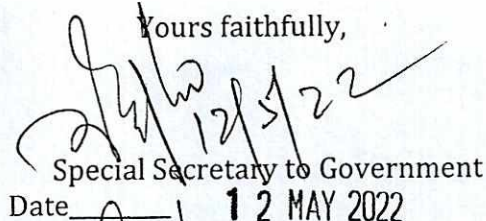 Yours faithfully,
12/5/22
Special Secretary to Government
Date 12 MAY 2022